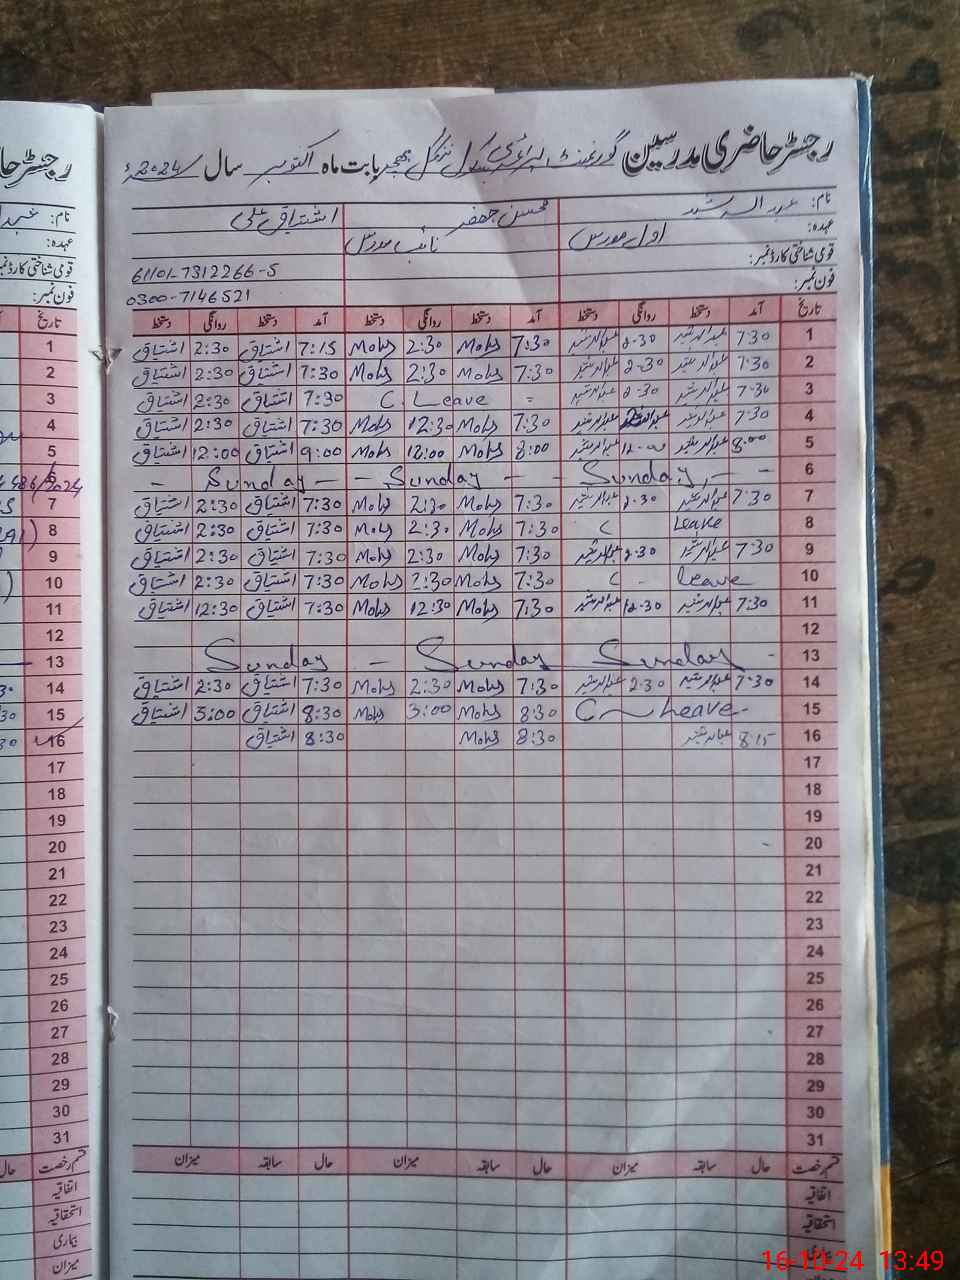 رجسٹر حاضری مدرسین گورنمنٹ پرائمری سکول بابت ماہ اکتوبر سال 2024ء
نام: عبدالرشید محسن جعفر اشتیاق علی
عہدہ: اول مدرس نائب مدرس
قومی شناختی کارڈ نمبر: 61101-7312266-5
فون نمبر: 0300-7146521
تاریخ آمد دستخط روانگی دستخط آمد دستخط روانگی دستخط آمد دستخط روانگی دستخط
1 7:30 عبدالرشید 2-30 عبدالرشید 7:30 Mohs 2:30 Mohs 7:15 اشتیاق 2:30 اشتیاق
2 7:30 عبدالرشید 2-30 عبدالرشید 7:30 Mohs 2:30 Mohs 7:30 اشتیاق 2:30 اشتیاق
3 7-30 عبدالرشید 2-30 عبدالرشید C. Leave = 7:30 اشتیاق 2:30 اشتیاق
4 7:30 عبدالرشید عبدالرشید 7:30 Mohs 12:30 Mohs 7:30 اشتیاق 2:30 اشتیاق
5 8:00 عبدالرشید 12-00 عبدالرشید 8:00 Mohs 12:00 Mohs 9:00 اشتیاق 12:00 اشتیاق
6 - Sunday - - Sunday - - Sunday - -
7 7:30 عبدالرشید 2-30 عبدالرشید 7:30 Mohs 2:30 Mohs 7:30 اشتیاق 2:30 اشتیاق
8 C Leave 7:30 Mohs 2:30 Mohs 7:30 اشتیاق 2:30 اشتیاق
9 7:30 عبدالرشید 2-30 عبدالرشید 7:30 Mohs 2:30 Mohs 7:30 اشتیاق 2:30 اشتیاق
10 C - leave 7:30 Mohs 2:30 Mohs 7:30 اشتیاق 2:30 اشتیاق
11 7:30 عبدالرشید 12-30 عبدالرشید 7:30 Mohs 12:30 Mohs 7:30 اشتیاق 12:30 اشتیاق
12
13 Sunday - Sunday Sunday -
14 7:30 عبدالرشید 2-30 عبدالرشید 7:30 Mohs 2:30 Mohs 7:30 اشتیاق 2:30 اشتیاق
15 C~Leave- 8:30 Mohs 3:00 Mohs 8:30 اشتیاق 3:00 اشتیاق
16 8:15 عبدالرشید 8:30 Mohs 8:30 اشتیاق
17
18
19
20
21
22
23
24
25
26
27
28
29
30
31
قسم رخصت حال سابقہ میزان حال سابقہ میزان حال سابقہ میزان
اتفاقیہ
استحقاقیہ
بیماری
رجسٹر حا
نام:
عہدہ:
قومی شناختی کارڈ نمبر
فون نمبر:
تاریخ
1
2
3
4
5
6
7
8
9
10
11
12
13
14
15
16
17
18
19
20
21
22
23
24
25
26
27
28
29
30
31
قسم رخصت حال
اتفاقیہ
استحقاقیہ
بیماری
میزان
16-10-24 13:49